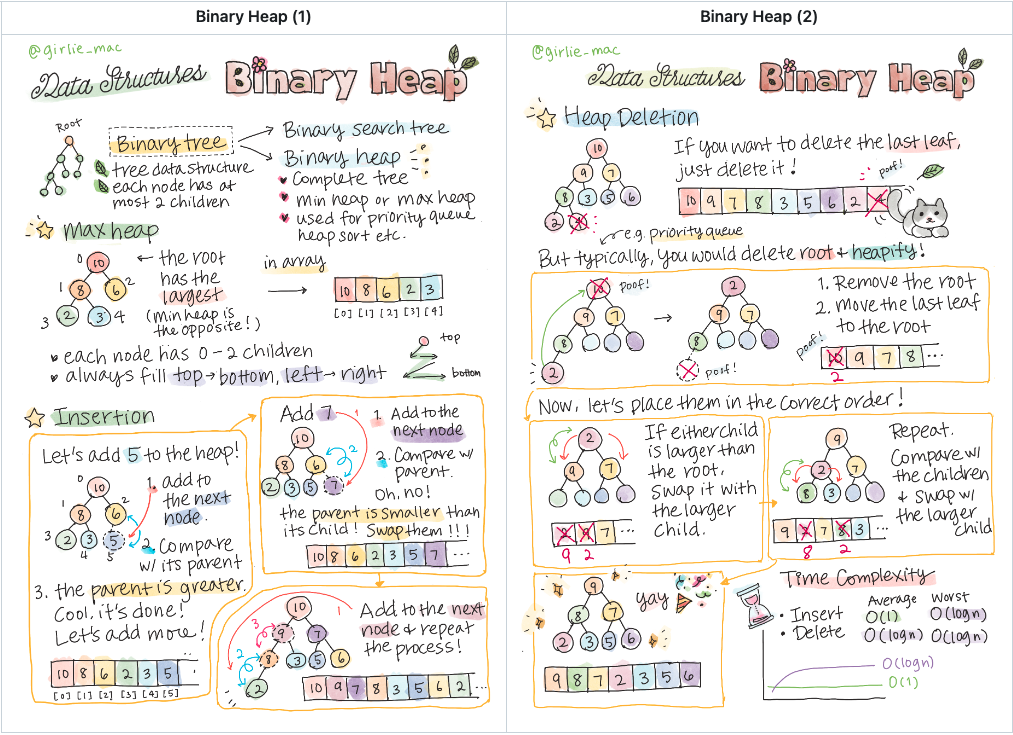 Binary Heap (1)
@girlie_mac
Data Structures Binary Heap
Root
Binary tree
tree data structure
each node has at
most 2 children
Binary search tree
Binary heap
Complete tree
min heap or max heap
used for priority queue
heap sort etc.
max heap
0
10
1
8
6
2
3
2
3
4
← the root
has the
largest
(min heap is
the opposite!)
in array
10 8 6 2 3
[0] [1] [2] [3] [4]
each node has 0-2 children
always fill top→bottom, left→right
top
bottom
Insertion
Let's add 5 to the heap!
0
10
1
8
2
6
3
2
3
5
4
5
1. add to
the next
node.
2. Compare
w/ its parent
3. the parent is greater.
Cool, it's done!
Let's add more!
10 8 6 2 3 5 ...
[0] [1] [2] [3] [4] [5]
Add 7
10
8 6
2 3 5 7
1
2
1. Add to the
next node
2. Compare w/
parent.
Oh, no!
the parent is smaller than
its child! Swap them!!!
10 8 6 2 3 5 7 ...
1
10
3
9 7
2
8 3 5 6
2
Add to the next
node & repeat
the process!
10 9 7 8 3 5 6 2 ...
Binary Heap (2)
@girlie_mac
Data Structures Binary Heap
Heap Deletion
10
9 7
8 3 5 6
2
If you want to delete the last leaf,
just delete it!
poof!
10 9 7 8 3 5 6 2
e.g. priority queue
But typically, you would delete root & heapify!
10
poof!
9 7
8
2
2
9 7
8
poof!
1. Remove the root
2. move the last leaf
to the root
poof!
10 9 7 8 ...
2
Now, let's place them in the correct order!
2
9 7
8
2 9 7 ...
9 2
If either child
is larger than
the root,
Swap it with
the larger
Child.
9
2 7
8 3
9 2 7 8 3 ...
8 2
Repeat.
Compare w/
the children
& swap w/
the larger
child
9
8 7
2 3 5 6
yay
9 8 7 2 3 5 6
Time Complexity
Average Worst
Insert O(1) O(logn)
Delete O(logn) O(logn)
O(logn)
O(1)